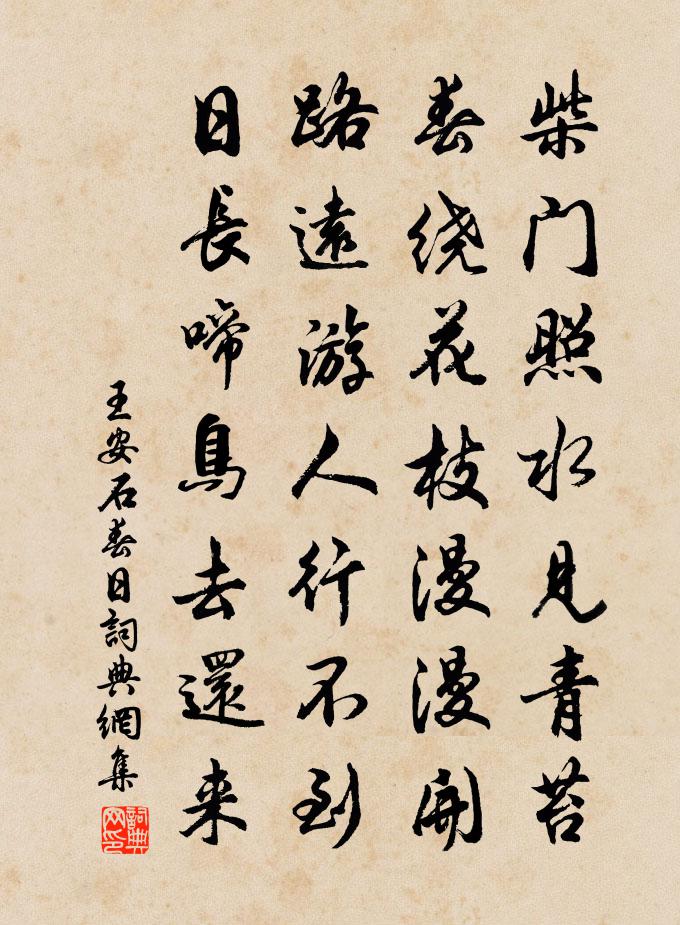 柴门照水見青苔
春绕花枝漫漫開
路遠游人行不到
日長啼鳥去還来
王安石春日詞典網集
詞典網印